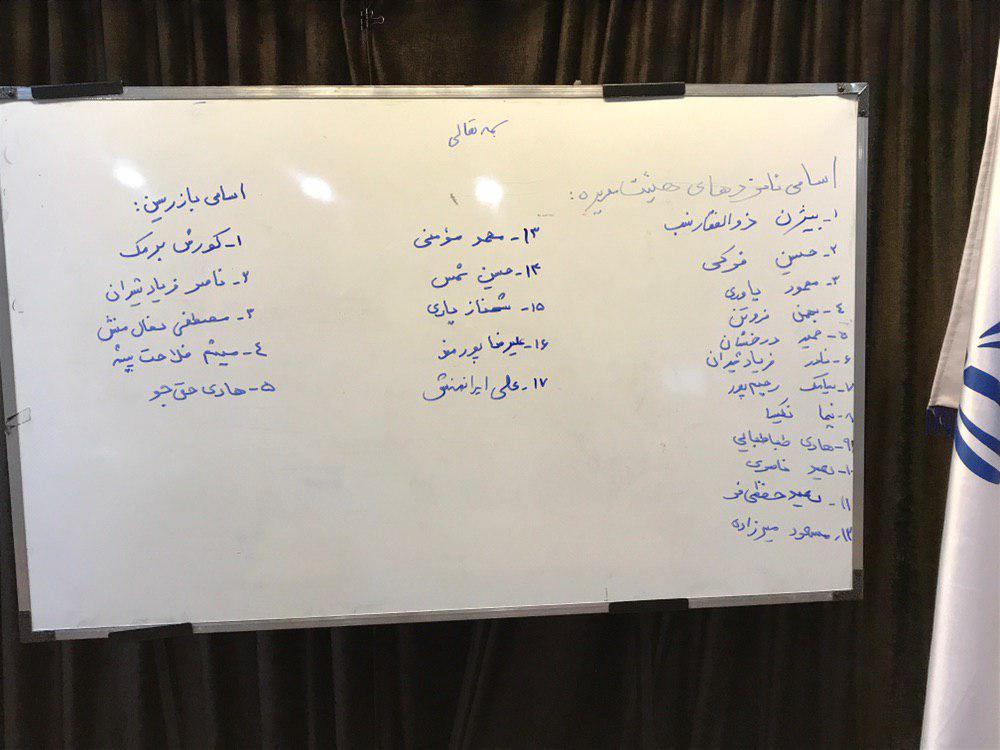 بسمه تعالی
اسامی نامزدهای هیئت مدیره:
۱- بیژن ذوالفقارنسب
۲- حسین فرکی
۳- محمود یاوری
۴- بهمن فروتن
۵- حمید درخشان
۶- نادر فریادشیران
۷- بیابک رحیم پور
۸- نیما نکیسا
۹- هادی طباطبایی
۱۰- ناصری
۱۱-
۱۲- مسعود میرزاده
۱۳- محمد مؤمنی
۱۴- حسین شمس
۱۵- شهناز یاری
۱۶- علیرضا پور منو
۱۷- علی ایرانمنش
اسامی بازرسین:
۱- کورش برمک
۲- ناصر فریادشیران
۳- مصطفی
۴- میثم فلاحت پیشه
۵- هادی حق جو